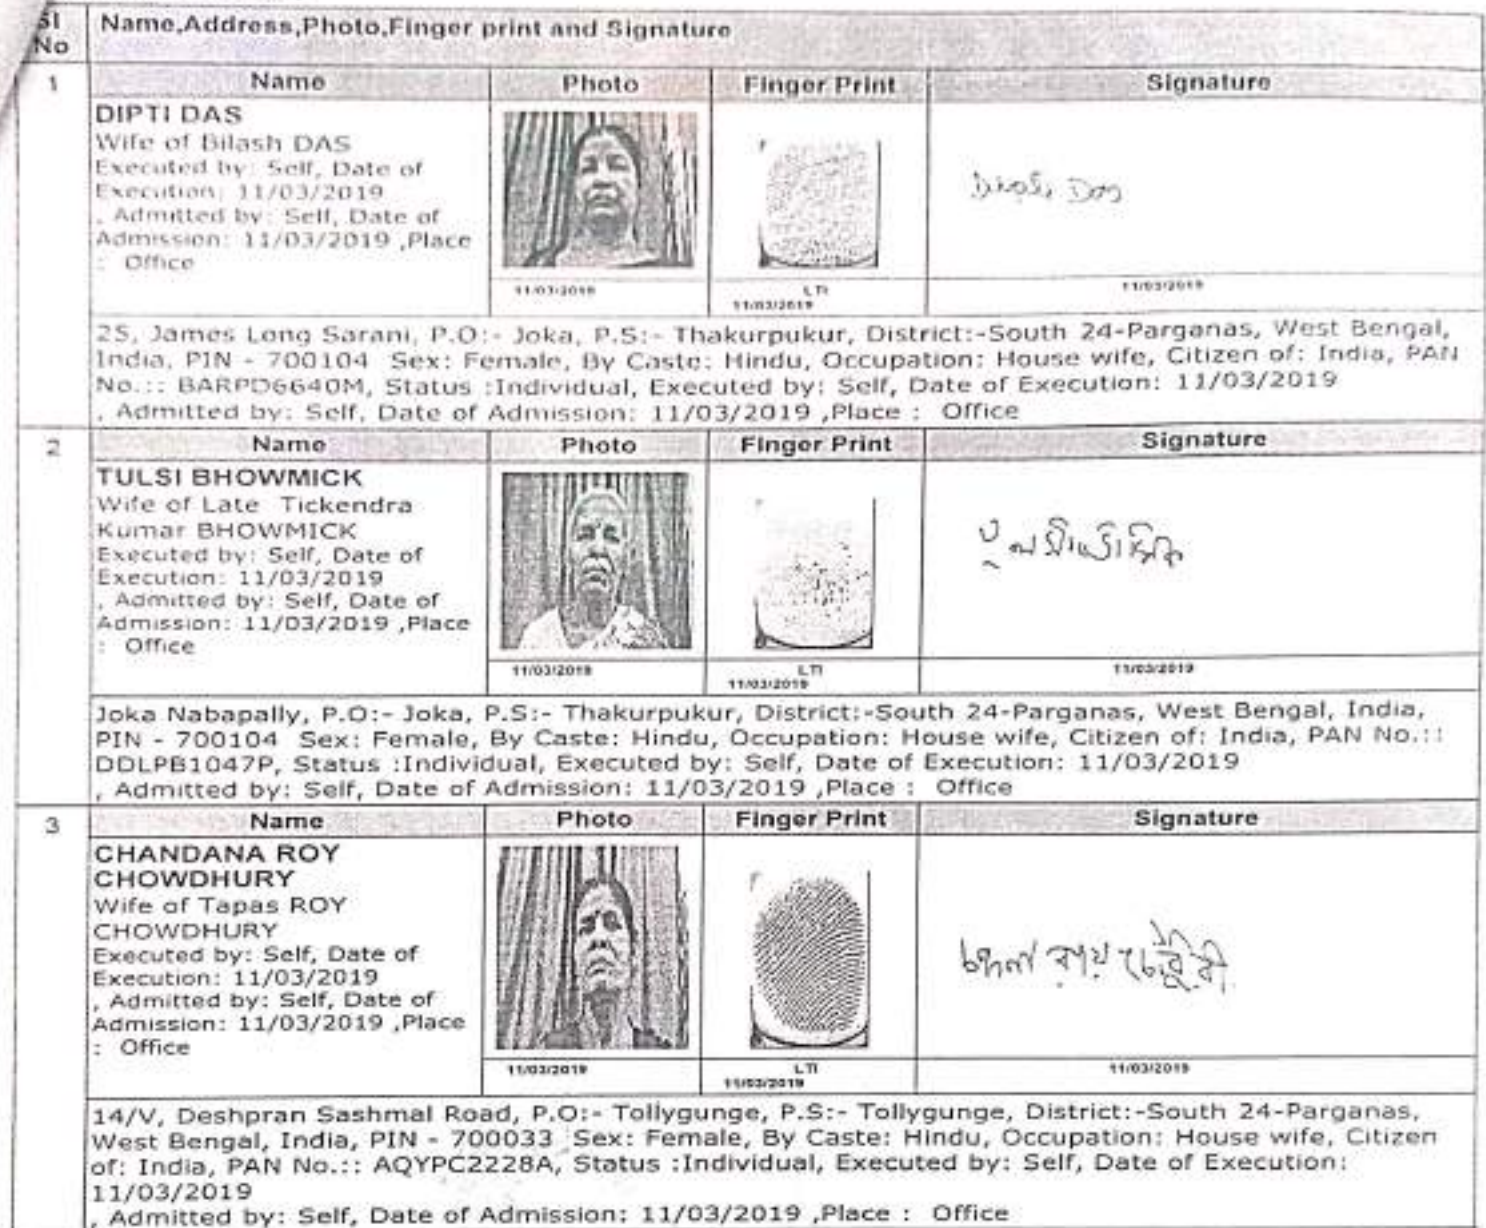 Sl No Name,Address,Photo,Finger print and Signature
1 Name Photo Finger Print Signature
DIPTI DAS
Wife of Bilash DAS
Executed by: Self, Date of
Execution: 11/03/2019
, Admitted by: Self, Date of
Admission: 11/03/2019 ,Place
: Office
11/03/2019 LTI 11/03/2019 11/03/2019
25, James Long Sarani, P.O:- Joka, P.S:- Thakurpukur, District:-South 24-Parganas, West Bengal,
India, PIN - 700104 Sex: Female, By Caste: Hindu, Occupation: House wife, Citizen of: India, PAN
No.:: BARPD6640M, Status :Individual, Executed by: Self, Date of Execution: 11/03/2019
, Admitted by: Self, Date of Admission: 11/03/2019 ,Place : Office
2 Name Photo Finger Print Signature
TULSI BHOWMICK
Wife of Late Tickendra
Kumar BHOWMICK
Executed by: Self, Date of
Execution: 11/03/2019
, Admitted by: Self, Date of
Admission: 11/03/2019 ,Place
: Office
11/03/2019 LTI 11/03/2019 11/03/2019
Joka Nabapally, P.O:- Joka, P.S:- Thakurpukur, District:-South 24-Parganas, West Bengal, India,
PIN - 700104 Sex: Female, By Caste: Hindu, Occupation: House wife, Citizen of: India, PAN No.::
DDLPB1047P, Status :Individual, Executed by: Self, Date of Execution: 11/03/2019
, Admitted by: Self, Date of Admission: 11/03/2019 ,Place : Office
3 Name Photo Finger Print Signature
CHANDANA ROY
CHOWDHURY
Wife of Tapas ROY
CHOWDHURY
Executed by: Self, Date of
Execution: 11/03/2019
, Admitted by: Self, Date of
Admission: 11/03/2019 ,Place
: Office
রায় চৌধুরী
11/03/2019 LTI 11/03/2019 11/03/2019
14/V, Deshpran Sashmal Road, P.O:- Tollygunge, P.S:- Tollygunge, District:-South 24-Parganas,
West Bengal, India, PIN - 700033 Sex: Female, By Caste: Hindu, Occupation: House wife, Citizen
of: India, PAN No.:: AQYPC2228A, Status :Individual, Executed by: Self, Date of Execution:
11/03/2019
, Admitted by: Self, Date of Admission: 11/03/2019 ,Place : Office